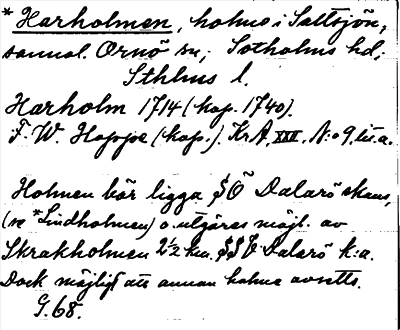 * Harholmen, holme i Saltsjön,
sannol. Ornö sn; Sotholms hd;
Sthlms l.
Harholm 1714 (kop. 1740).
F. W. Hoppe (kop.). KrA. XXII. N:o 9. lit. a.
Holmen bör ligga SÖ Dalarö skans,
(se *Lindholmen) o. utgöres möjl. av
Skrakholmen 2½ km. SSV Dalarö k:a.
Dock möjligt att annan holme avsetts.
G. 68.